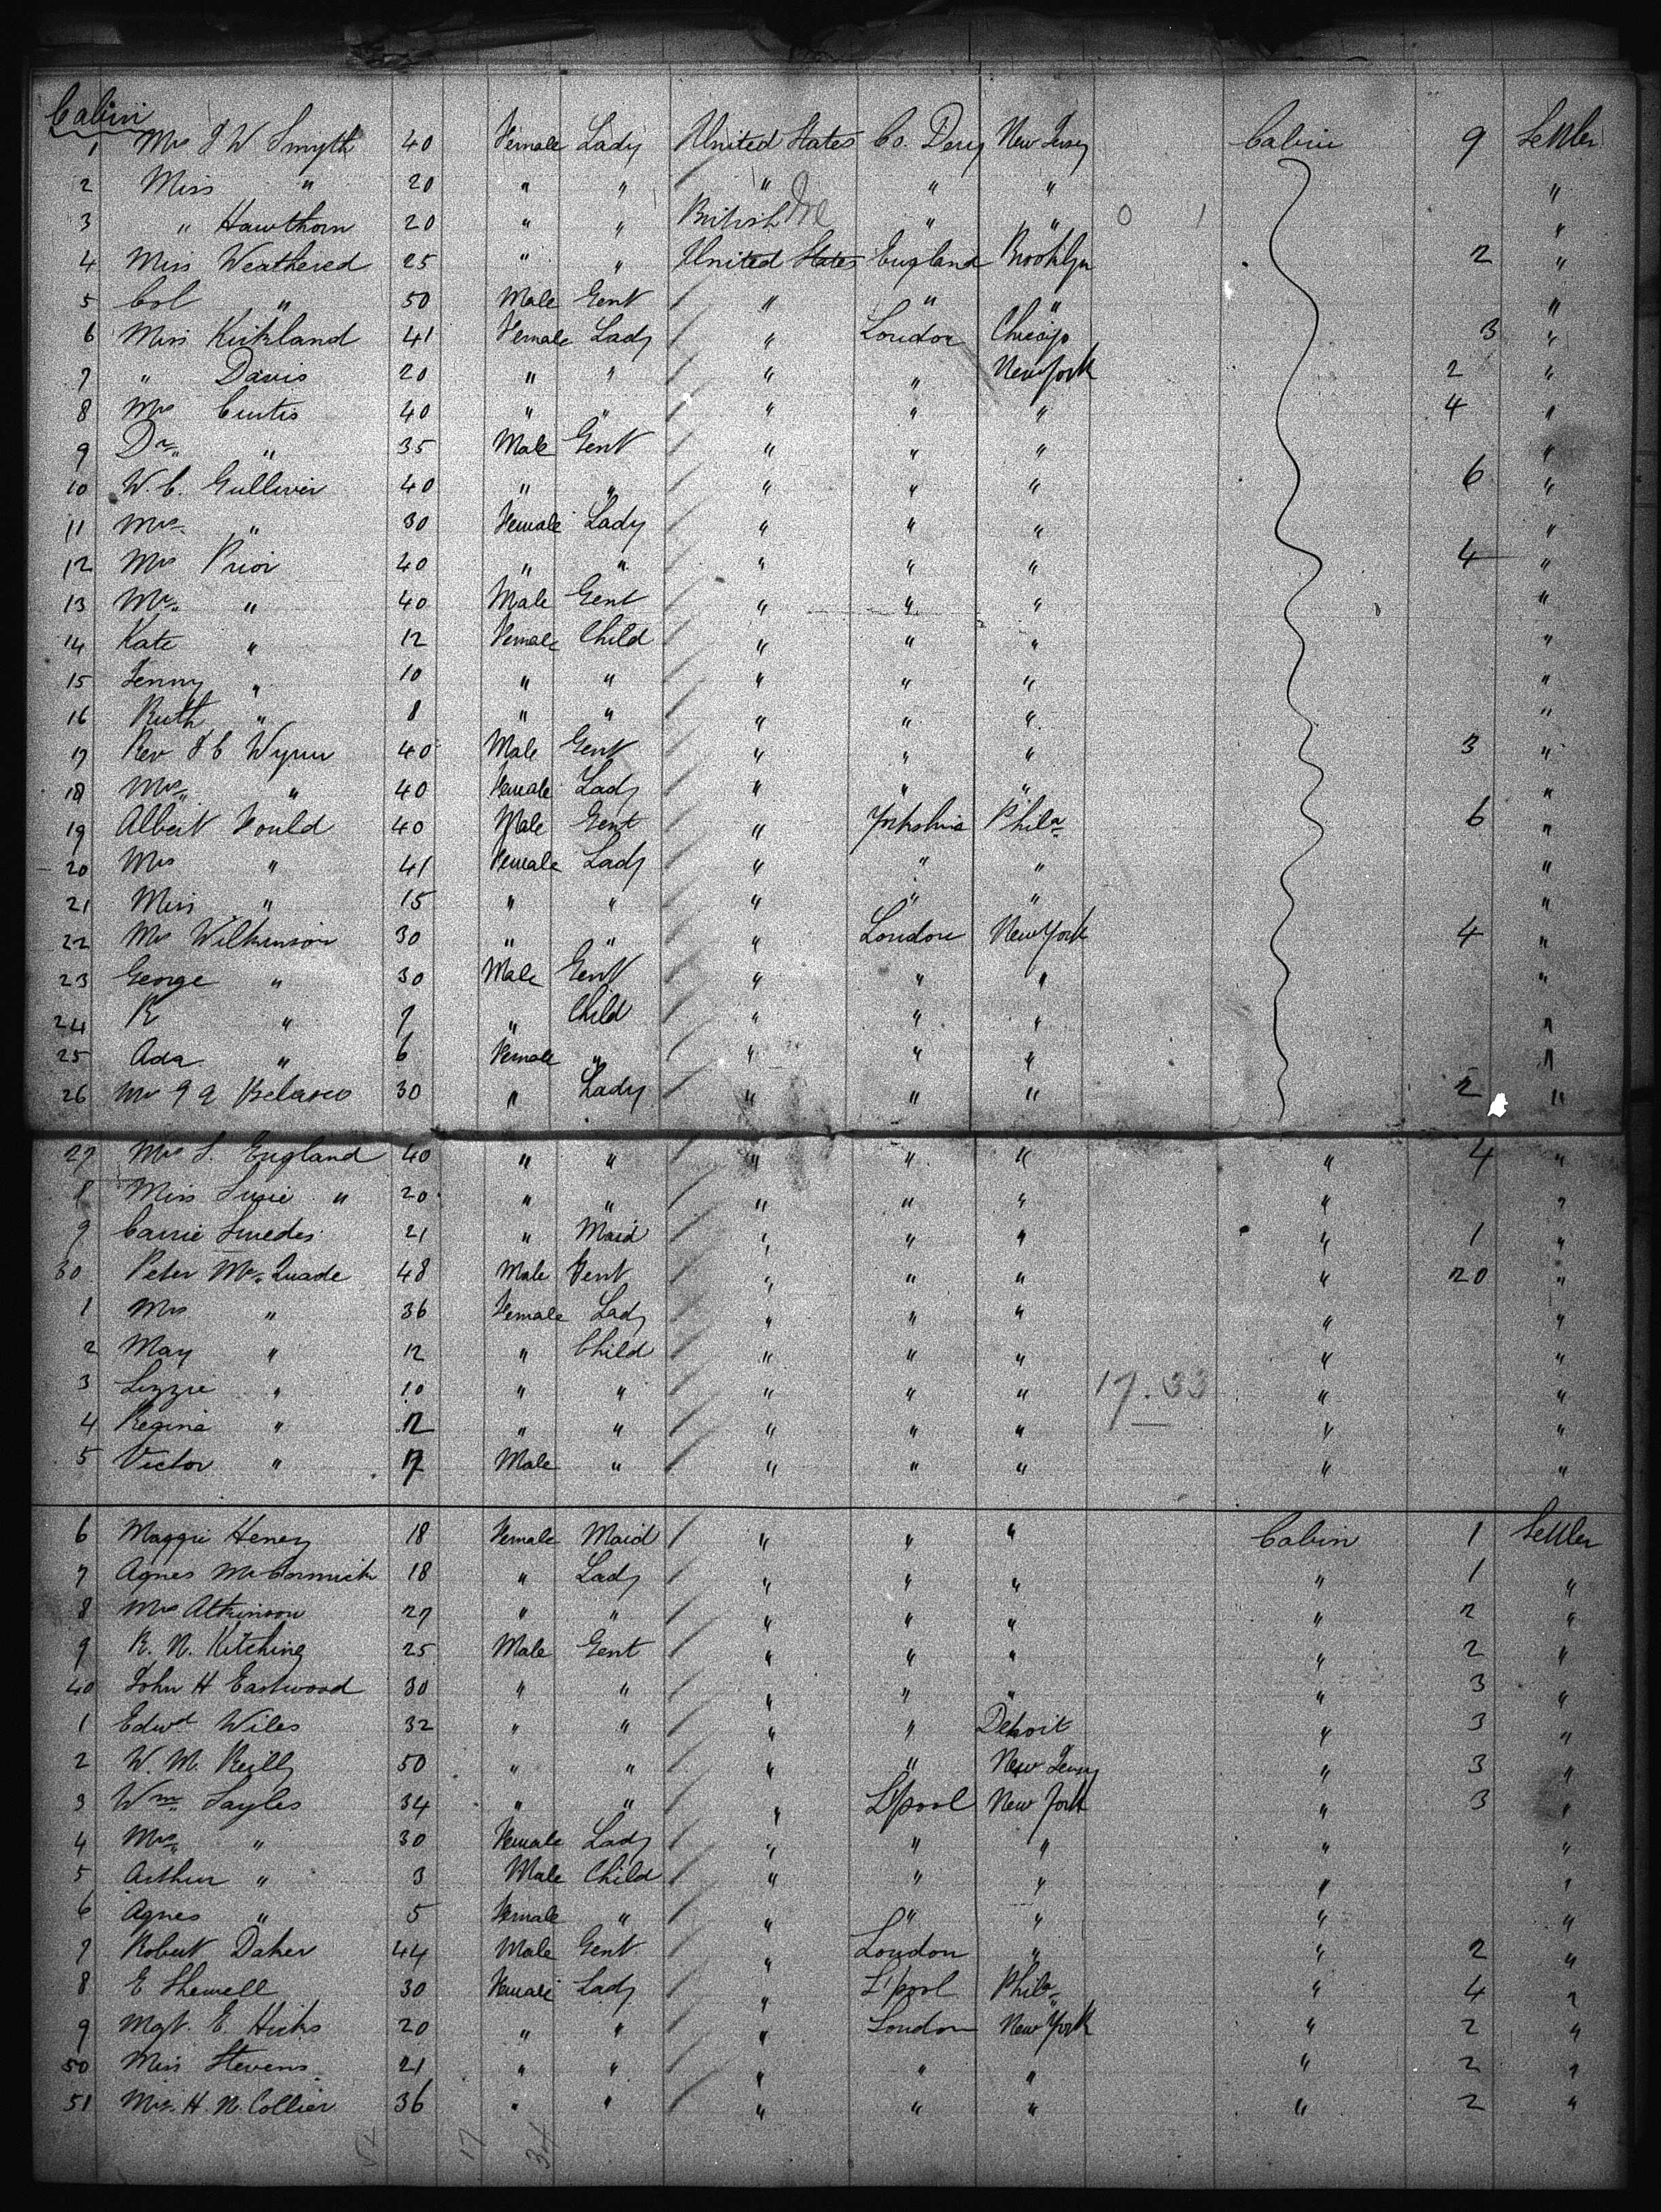 Cabin
1 Mrs J W Smyth 40 Female Lady United States Co. Derry New Jersey Cabin 9 Settler
2 Miss " 20 " " " " " "
3 " Hawthorn 20 " " British Ire " " 0 1 "
4 Miss Weathered 25 " " United States England Brooklyn 2 "
5 Col " 50 Male Gent " " " "
6 Miss Kirkland 41 Female Lady " London Chicago 3 "
7 " Davis 20 " " " " New York 2 "
8 Mrs Curtis 40 " " " " " 4 "
9 Dr. " 35 Male Gent " " " "
10 W. C. Gulliver 40 " " " " " 6 "
11 Mrs " 30 Female Lady " " " "
12 Mrs Prior 40 " " " " " 4 "
13 Mr. " 40 Male Gent " " " "
14 Kate " 12 Female Child " " " "
15 Jenny " 10 " " " " " "
16 Ruth " 8 " " " " " "
17 Rev J C Wynn 40 Male Gent " " " 3 "
18 Mrs " 40 Female Lady " " " "
19 Albert Fould 40 Male Gent " Yorkshire Phila 6 "
20 Mrs " 41 Female Lady " " " "
21 Miss " 15 " " " " " "
22 Mrs Wilkinson 30 " " " London New York 4 "
23 George " 30 Male Gent " " " "
24 R " 7 " Child " " " "
25 Ada " 6 Female " " " " "
26 Belasco 30 " Lady " " " 2 "
27 Mrs S. England 40 " " " " " " 4 "
8 Miss Susie " 20 " " " " " " "
9 Carrie Smedes 21 " Maid " " " " 1 "
30 Peter Mc Quade 48 Male Gent " " " " 20 "
1 Mrs " 36 Female Lady " " " " "
2 May " 12 " Child " " " " "
3 Lizzie " 10 " " " " " 17.33 " "
4 Regina " " " " " " " "
5 Victor " Male " " " " " "
6 Maggie Heney 18 Female Maid " " " Cabin 1 Settler
7 Agnes McCormick 18 " Lady " " " " 1 "
8 Mrs Atkinson 27 " " " " " " 2 "
9 R. N. Kitching 25 Male Gent " " " " 2 "
40 John H Eastwood 30 " " " " " " 3 "
1 Edwd Wiles 32 " " " " Detroit " 3 "
2 W. M. Reilly 50 " " " " New Jersey " 3 "
3 Wm. Sayles 34 " " " L'pool New York " 3 "
4 Mrs " 30 Female Lady " " " " "
5 Arthur " 3 Male Child " " " " "
6 Agnes " 5 Female " " " " " "
7 Robert Daker 44 Male Gent " London " " 2 "
8 E Shewell 30 Female Lady " L'pool Phila " 4 "
9 Mgt. E. Hicks 20 " " " London New York " 2 "
50 Miss Stevens 21 " " " " " " 2 "
51 Mrs. H. N. Collier 36 " " " " " " 2 "
17 34